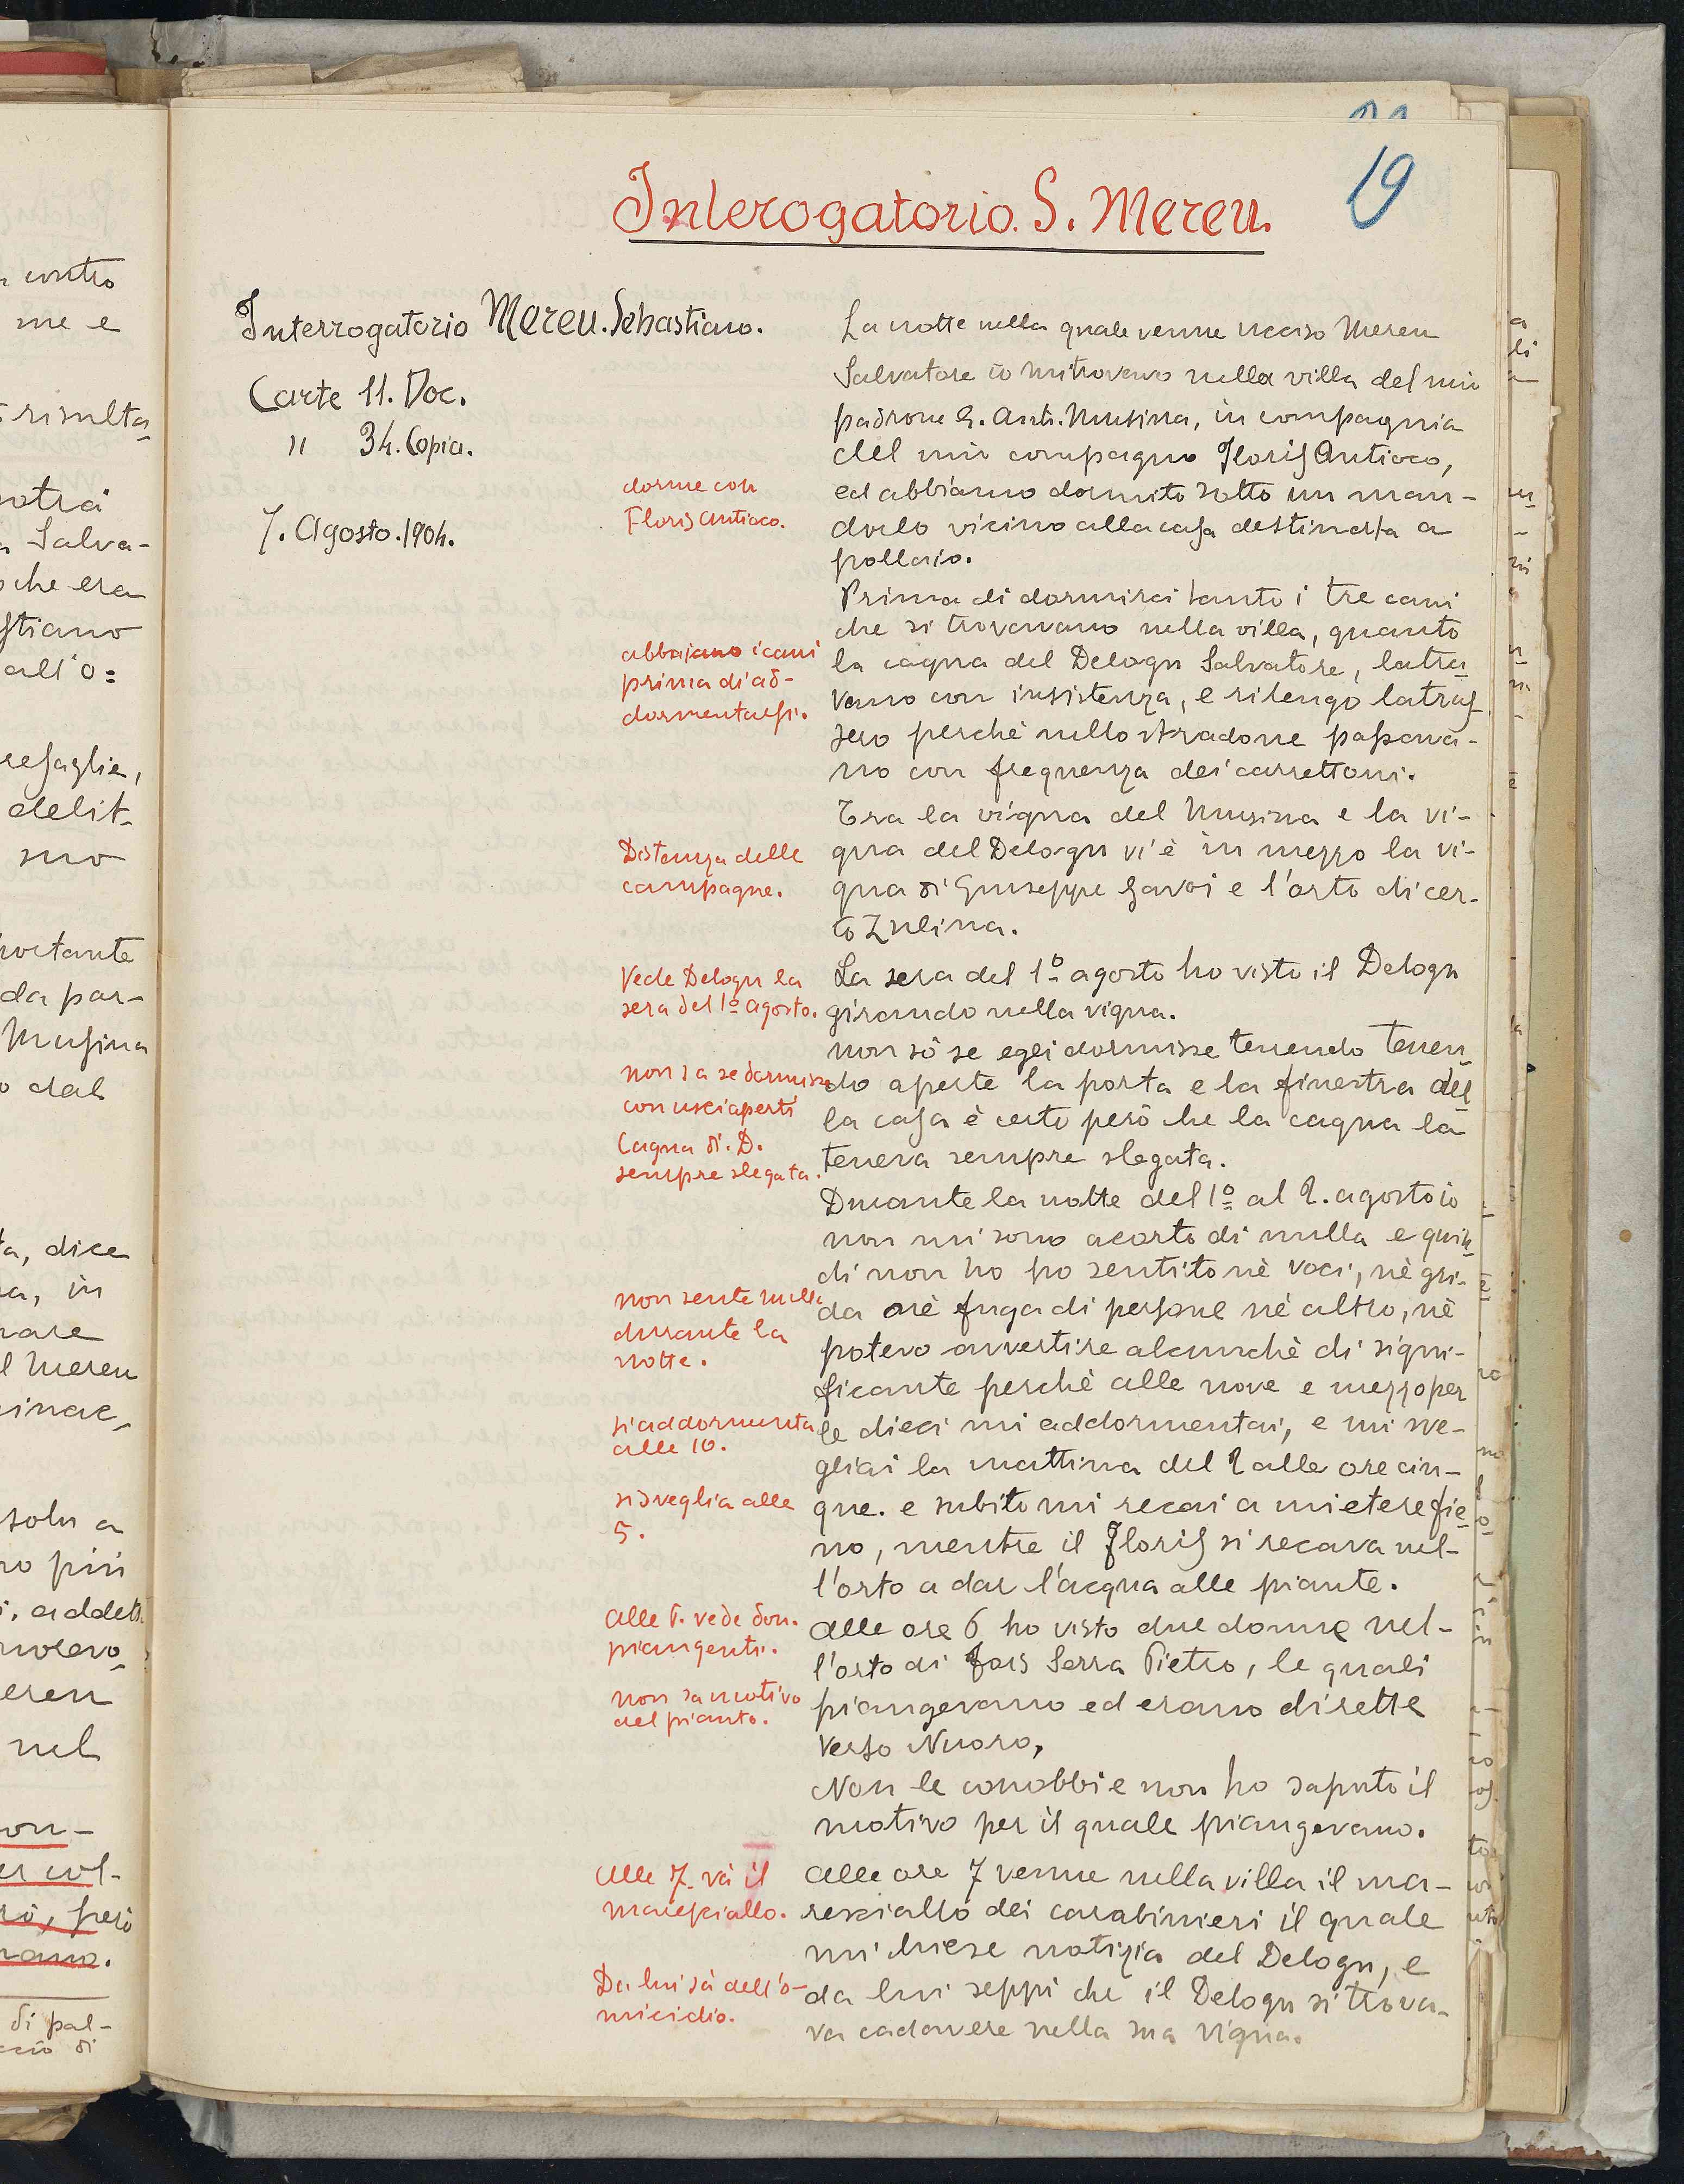 19
Interogatorio. S. Mereu.
Interrogatorio Mereu. Sebastiano.
Carte 11. Doc.
" 34. Copia.
7. Agosto. 1904.
La notte nella quale venne ucciso Mereu
Salvatore io mi trovavo nella villa del mio
padrone G. Ant. Musina, in compagnia
del mio compagno Floris Antioco,
ed abbiamo dormito sotto un man-
dorlo vicino alla casa destinata a
pollaio.
dorme con
Floris Antioco.
Prima di dormirci tanto i tre cani
che si trovavano nella villa, quanto
la cagna del Delogu Salvatore, latra-
vano con insistenza, e ritengo latras-
sero perchè nello stradone passava-
no con frequenza dei carrettoni.
abbajano i cani
prima di ad-
dormentarsi.
Tra la vigna del Musina e la vi-
gna del Delogu vi è in mezzo la vi-
gna di Giuseppe Gavoi e l'orto di cer-
to Zulina.
Distanza delle
campagne.
La sera del 1º agosto ho visto il Delogu
girando nella vigna.
Vede Delogu la
sera del 1º agosto.
non sò se egli dormisse tenendo tenen-
do aperte la porta e la finestra del-
la casa è certo però che la cagna la
teneva sempre slegata.
non sa se dormisse
con usci aperti
Cagna di D.
sempre slegata.
Durante la notte del 1º al 2. agosto io
non mi sono acorto di nulla e quin-
di non ho po sentito nè voci, nè gri-
da nè fuga di persone nè altro, nè
potevo avvertire alcunchè di signi-
ficante perchè alle nove e mezzo per
le dieci mi addormentai, e mi sve-
gliai la mattina del 2 alle ore cin-
que. e subito mi recai a mietere fie-
no, mentre il Floris si recava nel-
l'orto a dar l'acqua alle piante.
non sente nulla
durante la
notte.
si addormenta
alle 10.
si sveglia alle
5.
alle ore 6 ho visto due donne nel-
l'orto di Fois Serra Pietro, le quali
piangevano ed erano dirette
verso Nuoro,
Non le conobbi e non ho saputo il
motivo per il quale piangevano.
alle 6. vede don.
piangenti.
non sa motivo
del pianto.
alle ore 7 venne nella villa il ma-
resciallo dei carabinieri il quale
mi chiese notizia del Delogu, e
da lui seppi che il Delogu si trova-
va cadavere nella sua vigna.
Alle 7. và il
maresciallo.
Da lui sà dell'o-
micidio.
contro
me e
risulta-
Salva-
che era
stiano
all'o=
resaglie,
delit-
suo
portante
da par-
Musina
dal
dice
in
Mereu
più
nel
però
di pal-